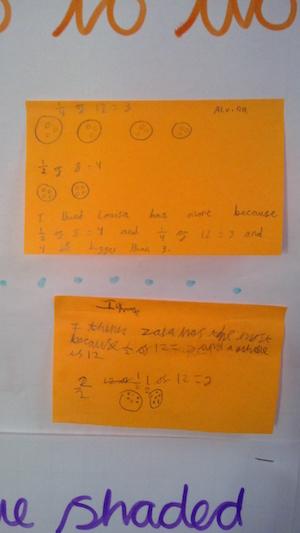 ¼ of 12 = 3
½ of 8 = 4
I think Louisa has more because
½ of 8 = 4 and ¼ of 12 = 3 and
4 is bigger than 3.
I think zara has the most
because ½ of 12 = 2 and a whole
is 12
2/2 ½ of 12 = 2
ue shaded